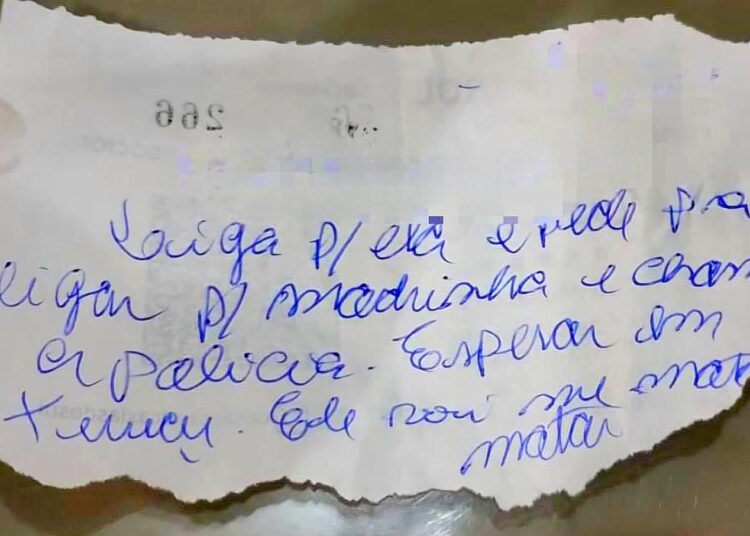 266
Liga p/ exa e pede pra
ligar p/ madrinha e cham
a policia. Esperar em
Ele vai me mat
matar